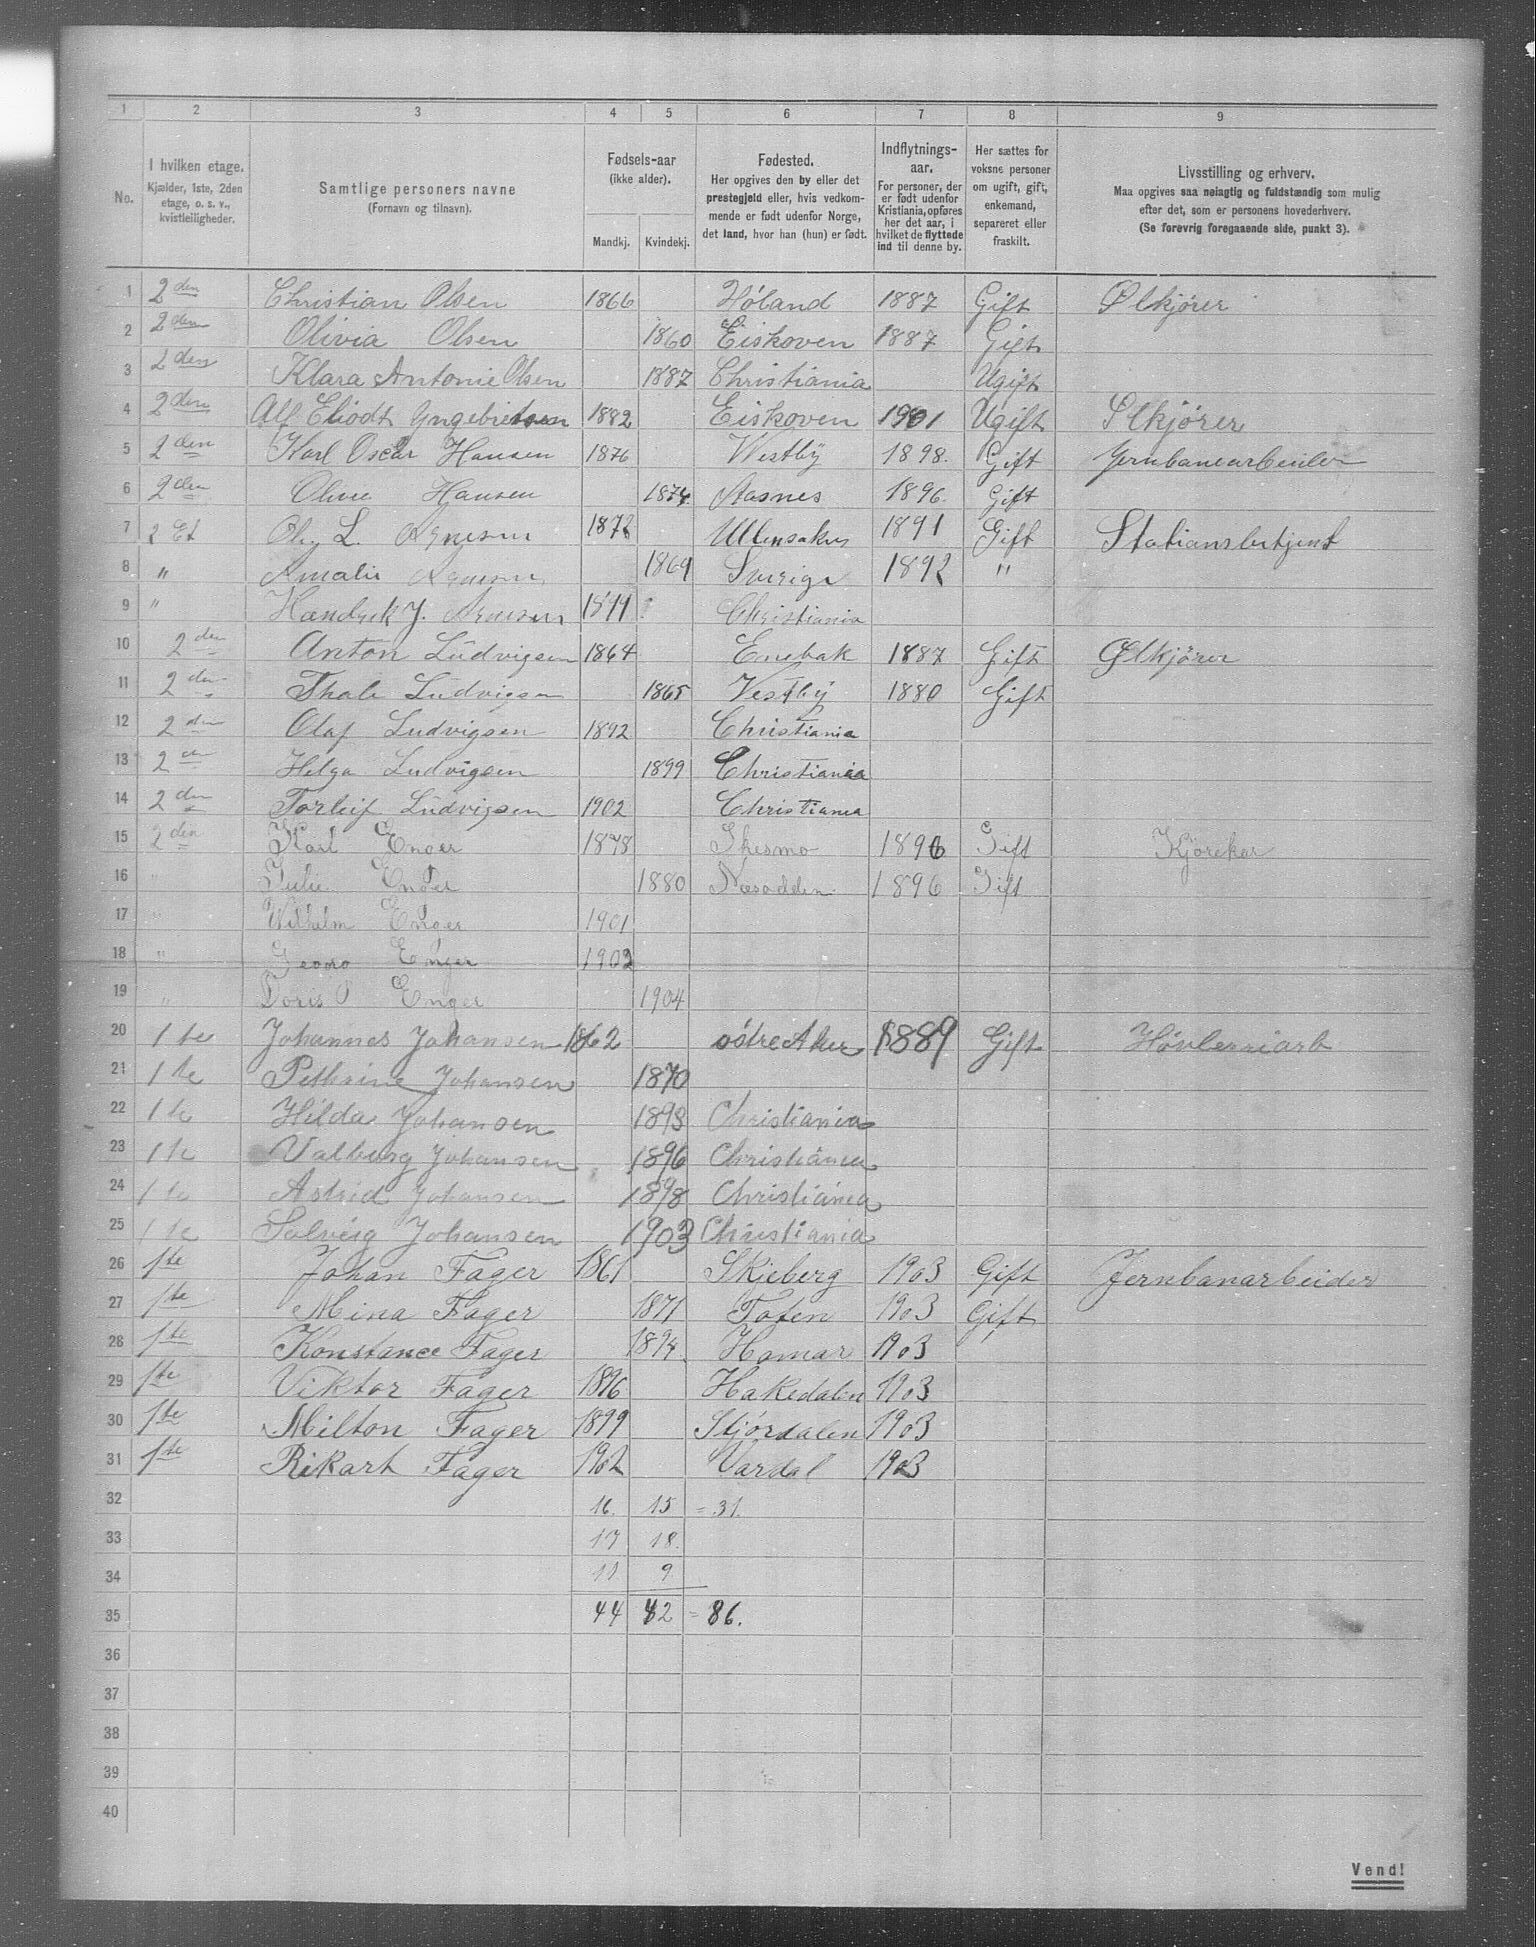 1 2 3 4 5 6 7 8 9
No.
I hvilken etage.
Kjælder, 1ste, 2den
etage, o. s. v.,
kvistleiligheder.
Samtlige personers navne
(Fornavn og tilnavn).
Fødsels-aar
(ikke alder).
Mandkj. Kvindekj.
Fødested.
Her opgives den by eller det
prestegjeld eller, hvis vedkom-
mende er født udenfor Norge,
det land, hvor han (hun) er født.
Indflytnings-
aar.
For personer, der
er født udenfor
Kristiania, opføres
her det aar, i
hvilket de flyttede
ind til denne by.
Her sættes for
voksne personer
om ugift, gift,
enkemand,
separeret eller
fraskilt.
Livsstilling og erhverv.
Maa opgives saa nøiagtig og fuldstændig som mulig
efter det, som er personens hovederhverv.
(Se forøvrig foregaaende side, punkt 3).
1 2den Christian Olsen 1866 Höland 1887 Gift Ølkjører
2 2den Olivia Olsen 1860 Eiskoven 1887 Gift
3 2den Klara Antonie Olsen 1887 Christiania Ugift
4 2den Alf Eliodt Yngebretsen 1882 Eiskoven 1901 Ugift Ølkjører
5 2den Karl Oscar Hansen 1876 Westby 1898. Gift Jernbanearbeider
6 2den Oline Hansen 1874. Aasnes 1896. Gift
7 2 Et L. Arnesen 1872 Ullensaker 1891 Gift Stationsbetjent
8 " Amalie Arnesen 1869 Sverige 1892 "
9 " J. Arnesen Christiania
10 2den Anton Ludvigsen 1864 Enebak 1887 Gift Ølkjører
11 2den Thale Ludvigsen 1865 Vestby 1880 Gift
12 2den Olaf Ludvigsen 1892 Christiania
13 2den Helga Ludvigsen 1899 Christiania
14 2den Torleif Ludvigsen 1902 Christiania
15 2den Karl Enger 1878 Skesmo 1896 Gift Kjörekar
16 " Julie Enger 1880 Næsodden 1896 Gift
17 " Wilhelm Enger 1901
18 " Georg Enger 1902
19 " Doris Enger 1904
20 1te Johannes Johansen 1862 östre Aker 1889 Gift Høvleriarb
21 1te Pethrine Johansen 1870
22 1te Hilda Johansen 1893 Christiania
23 1te Valborg Johansen 1896 Christiania
24 1te Astrid Johansen 1898 Christiania
25 1te Solveig Johansen 1903 Christiania
26 1te Johan Fager 1861 Skjeberg 1903 Gift Jernbanarbeider
27 1te Mina Fager 1871 Toten 1903 Gift
28 1te Konstance Fager 1894. Hamar 1903
29 1te Viktor Fager 1896 Hakedalen 1903
30 1te Milton Fager 1899 Stjördalen 1903
31 1te Rikart Fager 1902 Vardal 1903
32 16. 15 = 31.
33 17 18.
34 11 9
35 44 42 = 86.
36
37
38
39
40
Vend!